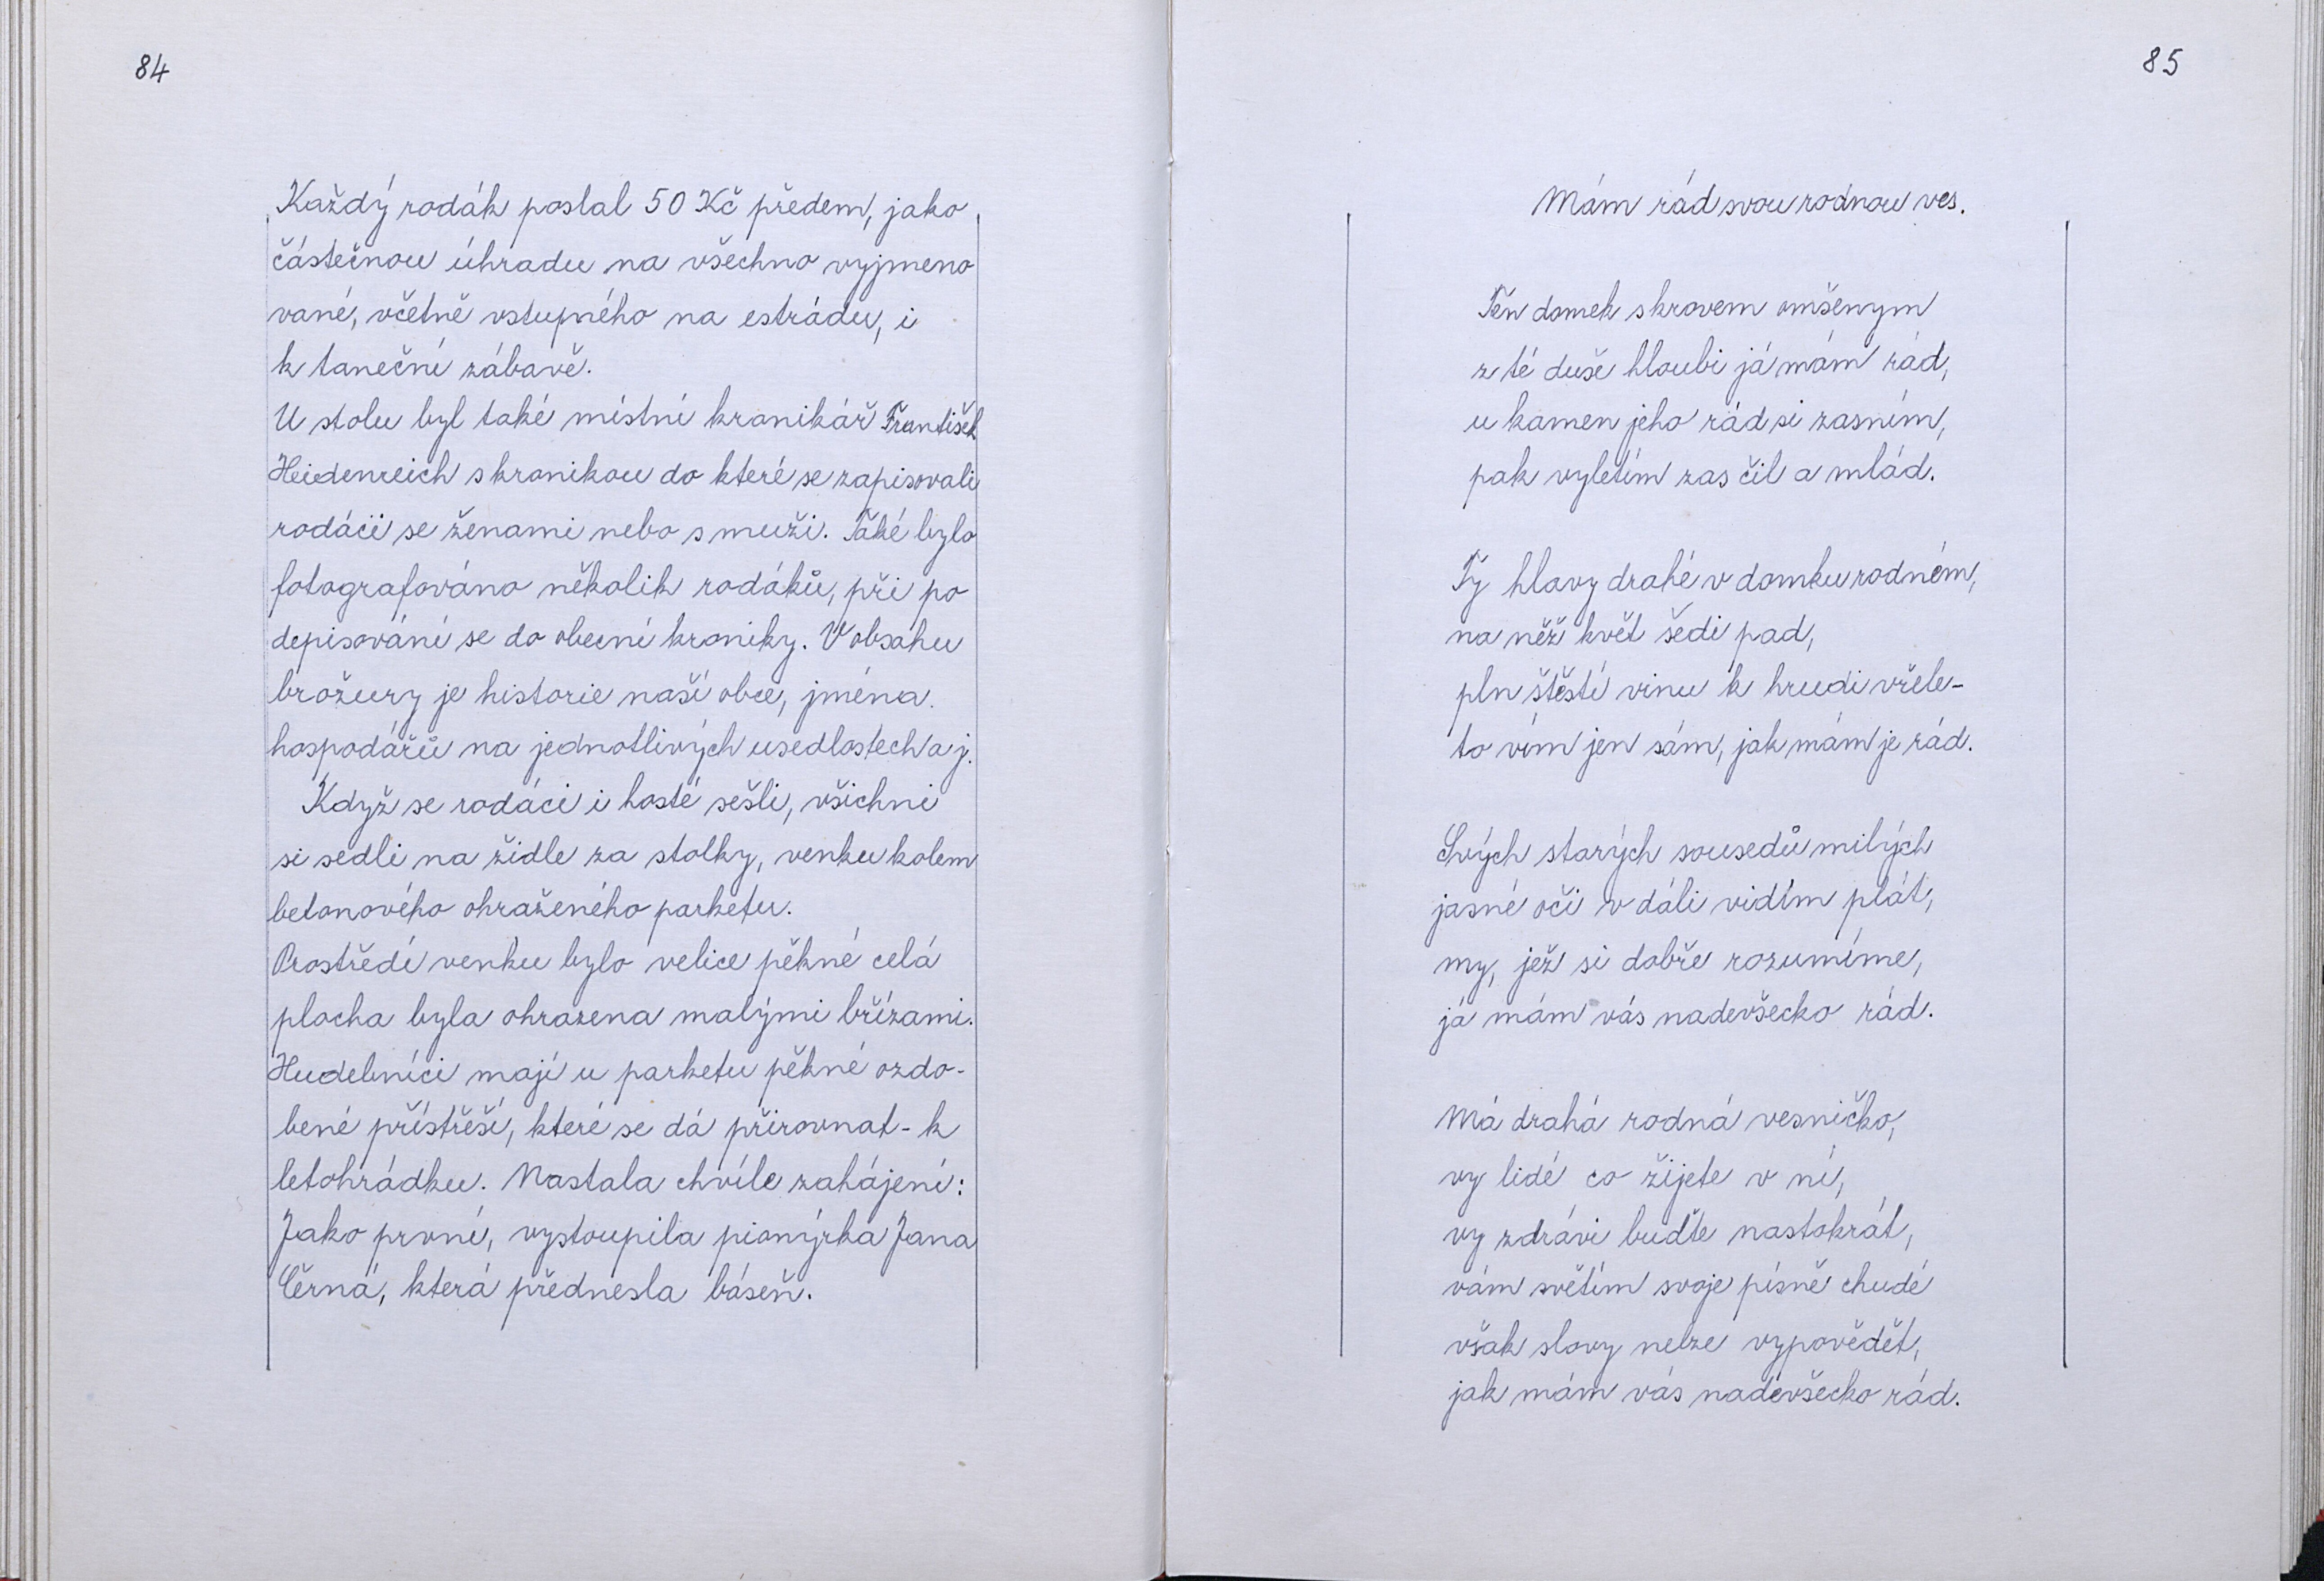 84
Každý rodák poslal 50 Kč předem, jako
částečnou úhradu na všechno vyjmeno
vané, včetně vstupného na estrádu, i
k taneční zábavě.
U stolu byl také místní kronikář František
Heidenreich s kronikou do které se zapisovali
rodáci se ženami nebo s muži. Také bylo
fotografováno několik rodáků, při po
depisování se do obecní kroniky. V obsahu
brožury je historie naší obce, jména
hospodářů na jednotlivých usedlostech a j.
Když se rodáci i hosté sešli, všichni
si sedli na židle za stolky, venku kolem
betonového ohraženého parketu.
Prostředí venku bylo velice pěkné celá
plocha byla ohrazena malými břízami.
Hudebníci mají u parketu pěkné ozdo-
bené přístřeší, které se dá přirovnat - k
letohrádku. Nastala chvíle zahájení:
Jako první, vystoupila pionýrka Jana
Černá, která přednesla báseň.
85
Mám rád svou rodnou ves.
Ten domek s krovem omšenym
z té duše hloubi já mám rád,
u kamen jeho rád si zasním,
pak vyletím zas čil a mlád.
Ty hlavy drahé v domku rodném,
na něž květ šedi pad,
pln štěstí vinu k hrudi vřele-
to vím jen sám, jak mám je rád.
Svých starých sousedů milých
jasné oči v dáli vidím plát,
my, jež si dobře rozumíme,
já mám vás nadevšecko rád.
Má drahá rodná vesničko,
vy lidé co žijete v ní,
vy zdrávi buďte nastokrát,
vám světím svoje písně chudé
však slovy nelze vypovědět,
jak mám vás nadevšecko rád.